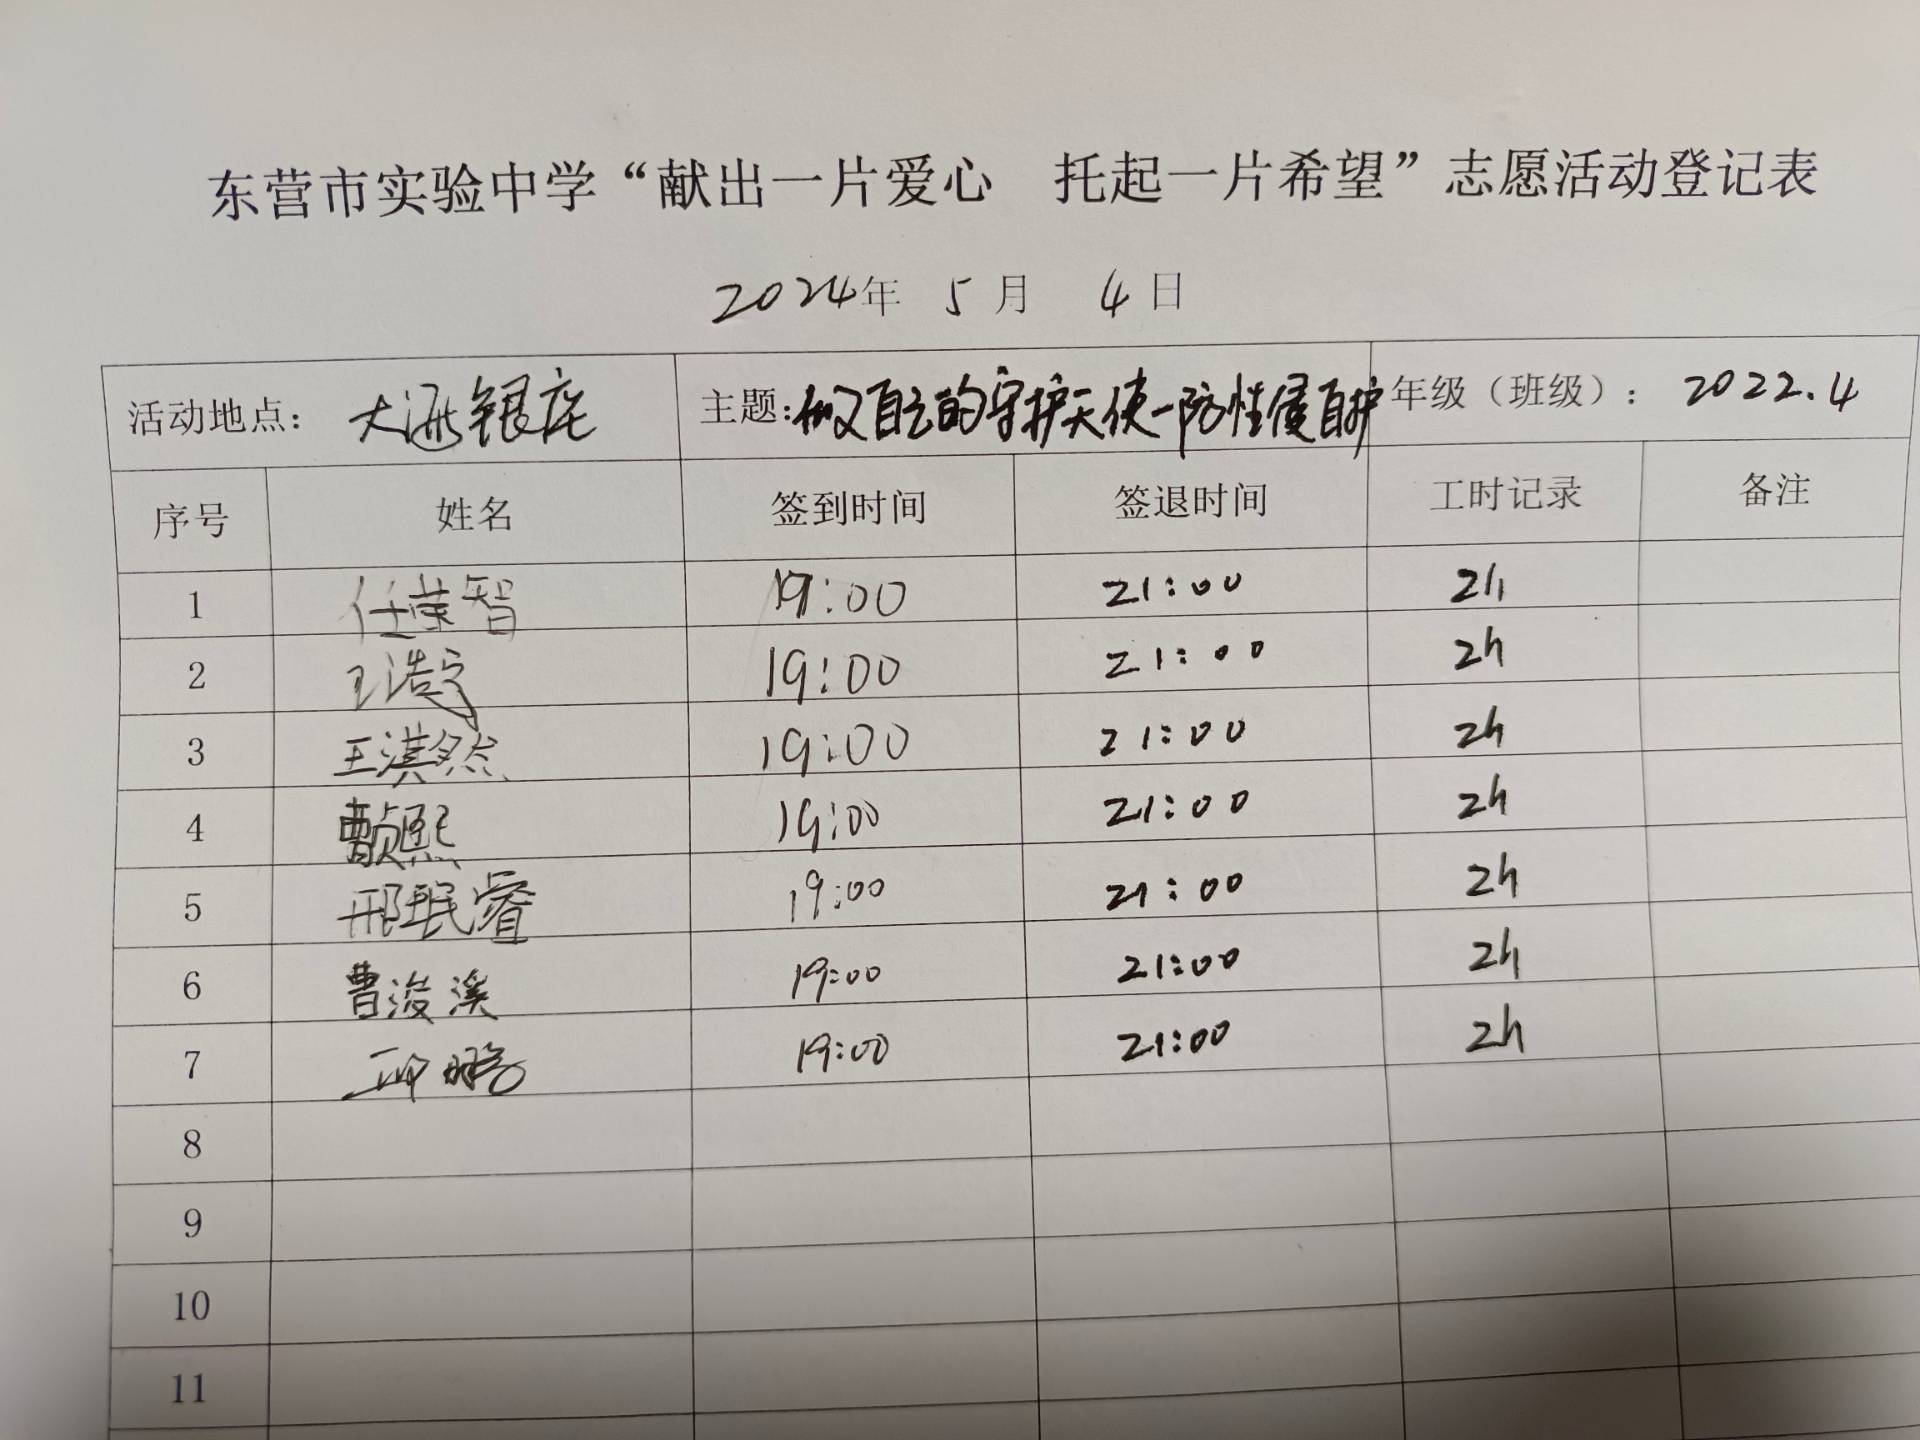 东营市实验中学“献出一片爱心 托起一片希望”志愿活动登记表
2024年 5月 4日
活动地点： 大海银座 主题：做自己的守护天使一防性侵自护 年级（班级）：2022.4
序号 姓名 签到时间 签退时间 工时记录 备注
1 任荣智 19:00 21:00 2h
2 王浩宇 19:00 21:00 2h
3 王淇然 19:00 21:00 2h
4 曹颜熙 19:00 21:00 2h
5 邢珉睿 19:00 21:00 2h
6 曹浚溪 19:00 21:00 2h
7 邱鹏 19:00 21:00 2h
8
9
10
11